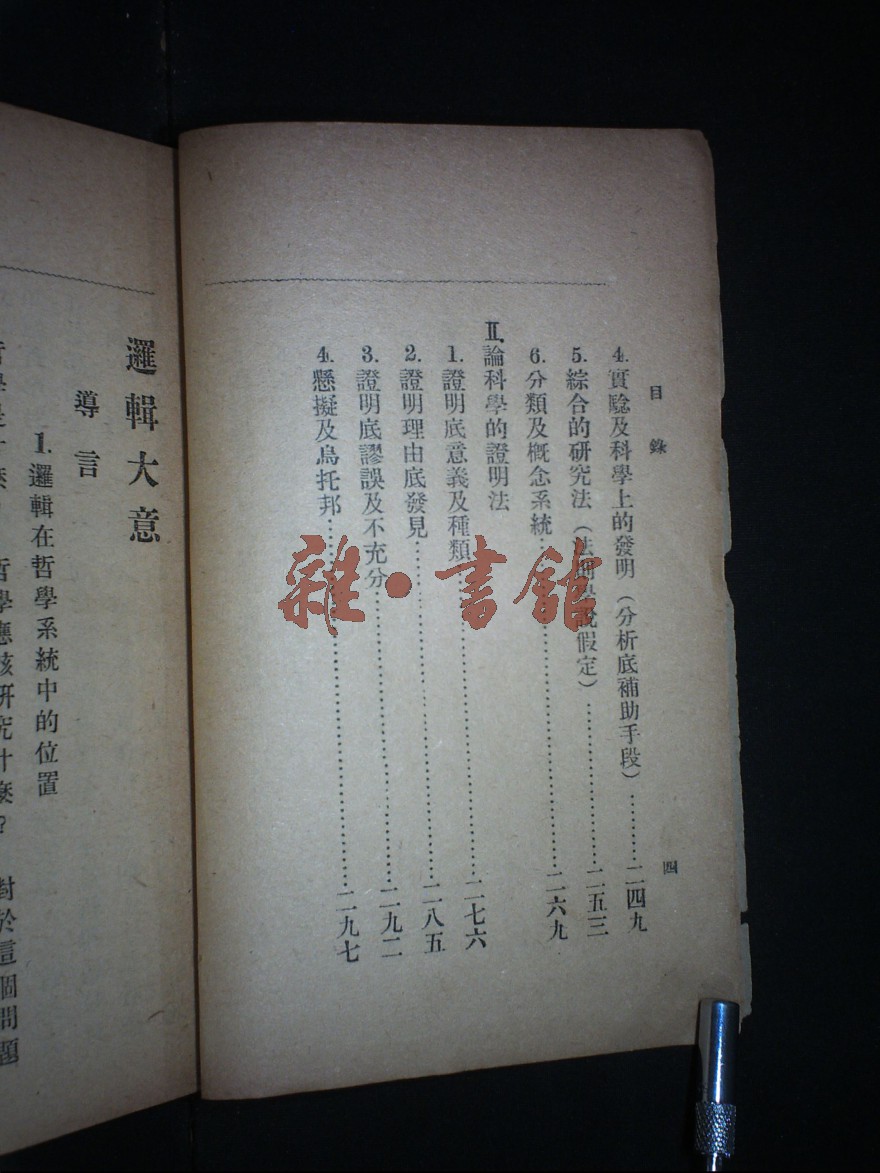 目錄
四
4. 實驗及科學上的發明（分析底補助手段）…………二四九
5. 綜合的研究法（法則學說假定）…………二五三
6. 分類及概念系統…………二六九
II. 論科學的證明法
1. 證明底意義及種類…………二七六
2. 證明理由底發見…………二八五
3. 證明底謬誤及不充分…………二九二
4. 懸擬及烏托邦…………二九七
雜·書館
邏輯大意
導言
1. 邏輯在哲學系統中的位置
哲學應該研究什麼？ 對於這個問題